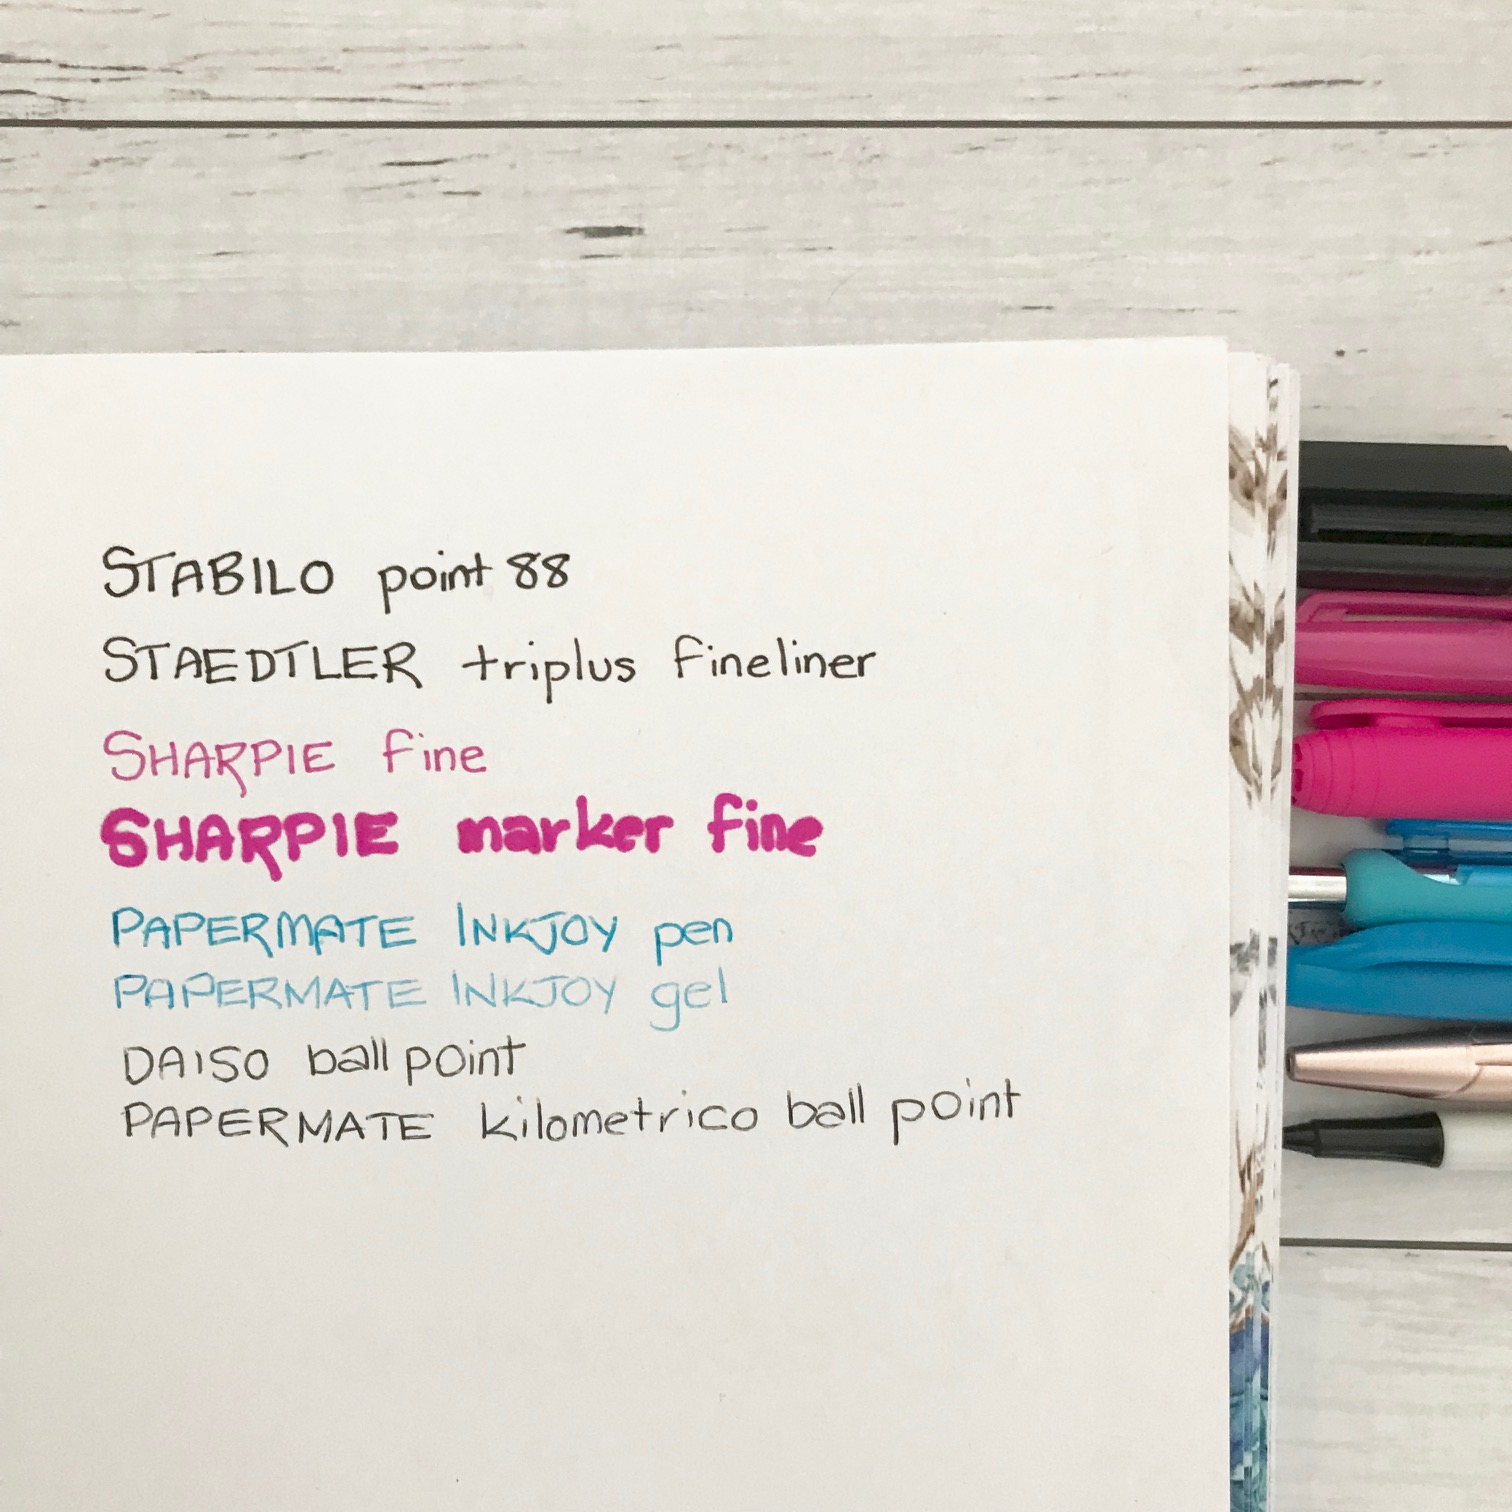 STABILO point 88
STAEDTLER triplus fineliner
SHARPIE fine
SHARPIE marker fine
PAPERMATE INKJOY pen
PAPERMATE INKJOY gel
DAISO ball point
PAPERMATE kilometrico ball point